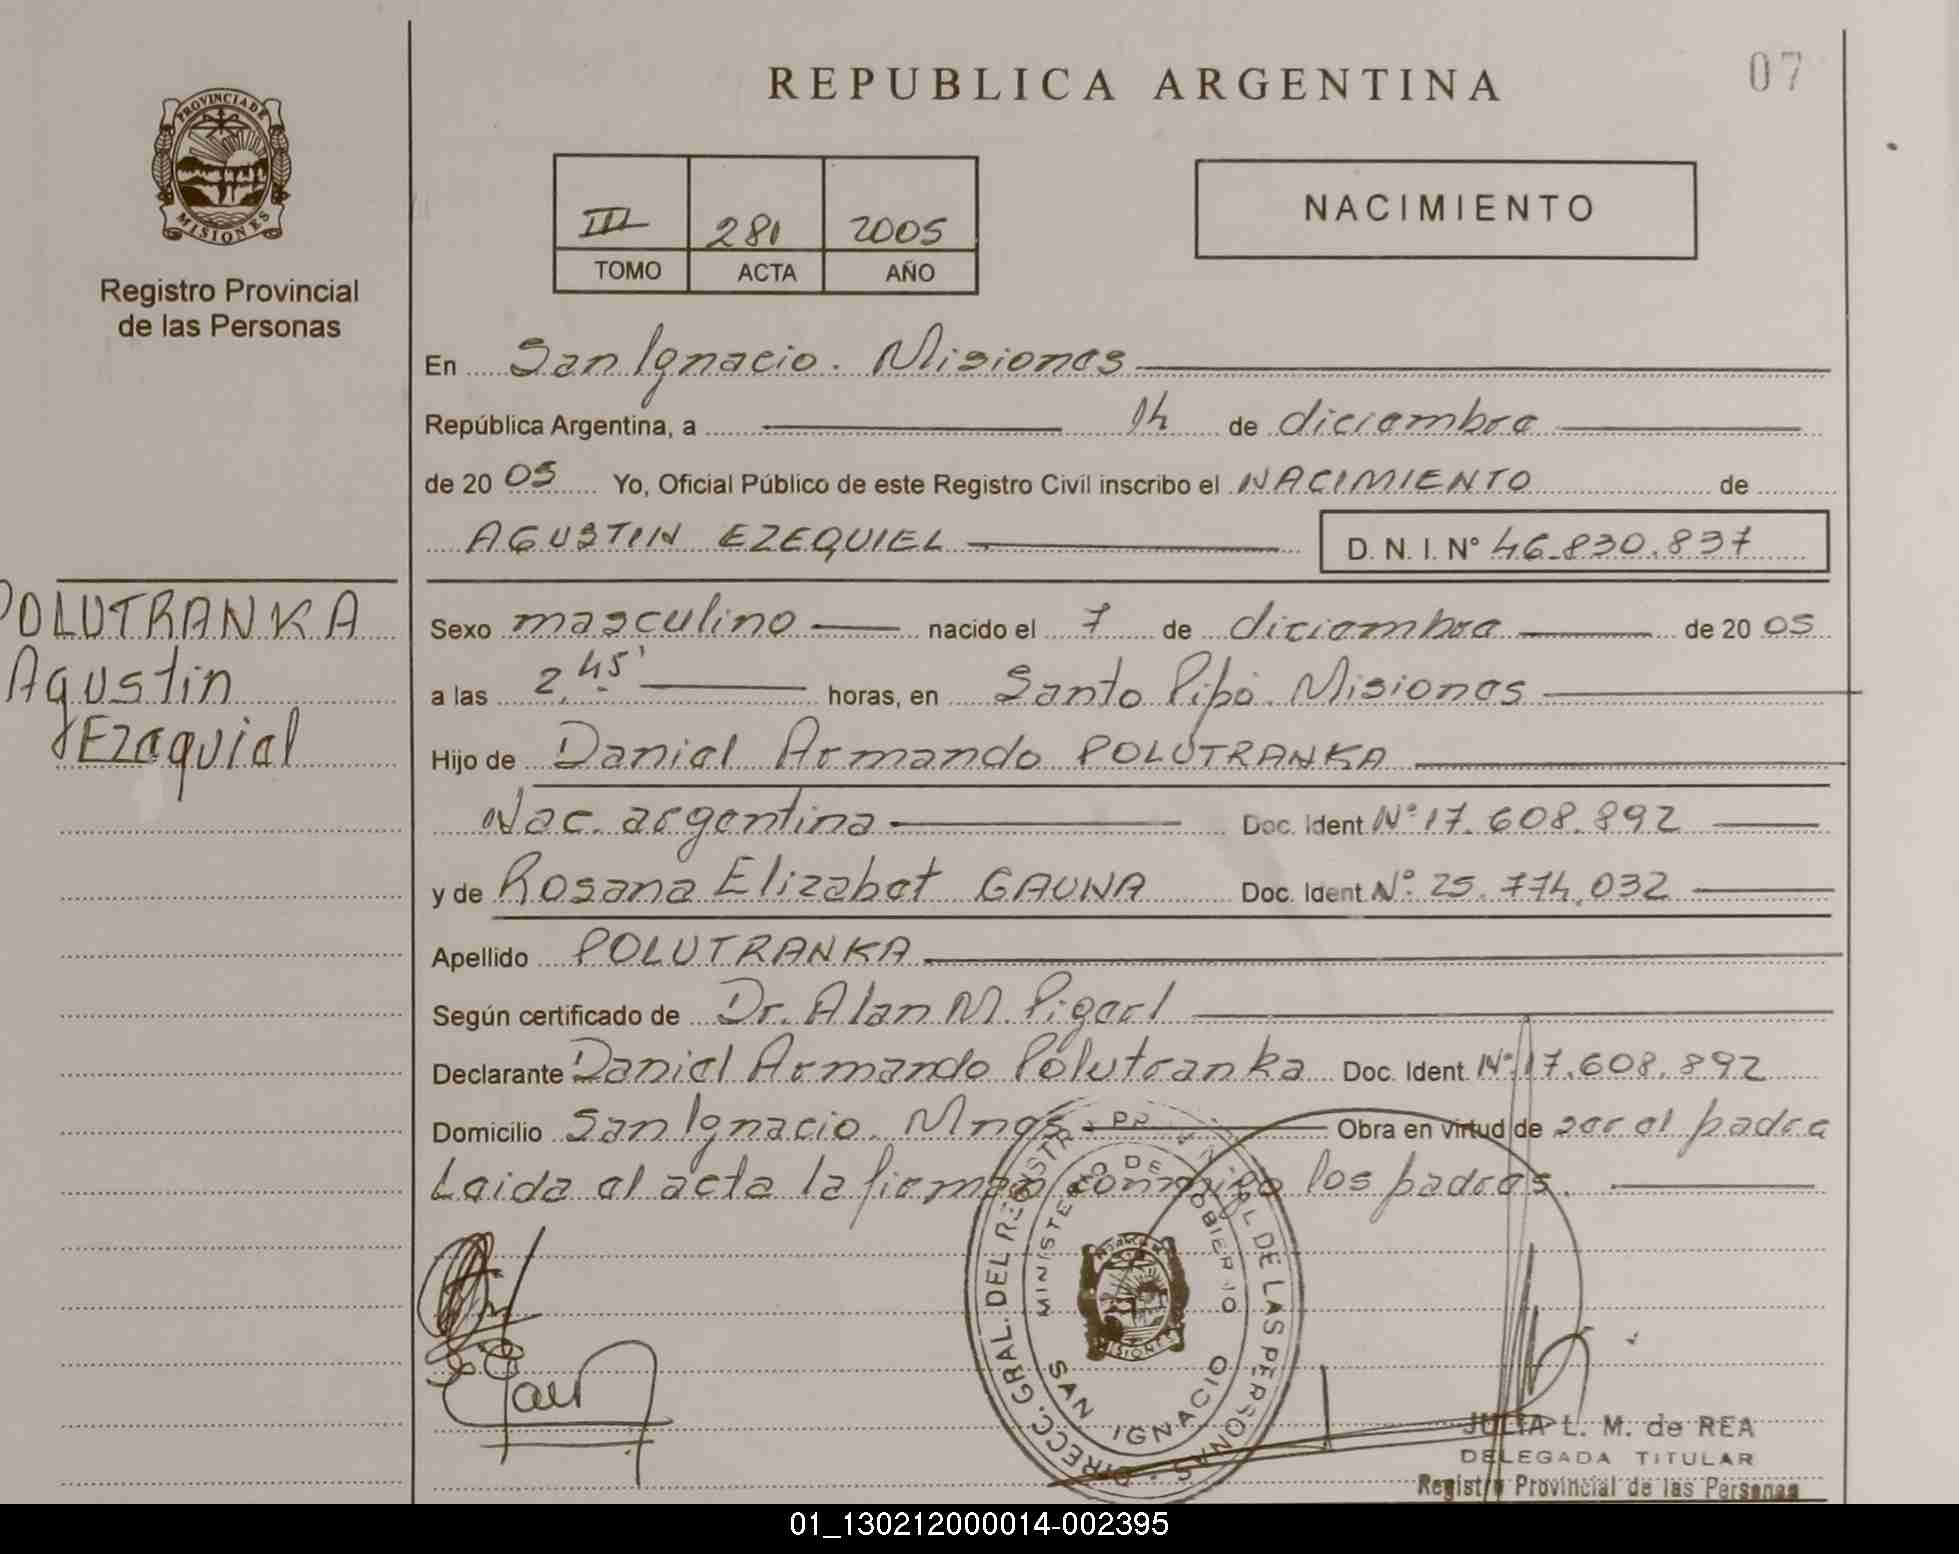 07
REPUBLICA ARGENTINA
PROVINCIA DE
MISIONES
Registro Provincial
de las Personas
III 281 2005
TOMO ACTA AÑO
NACIMIENTO
En San Ignacio. Misiones
República Argentina, a 14 de diciembre
de 20 05 Yo, Oficial Público de este Registro Civil inscribo el NACIMIENTO de
AGUSTIN EZEQUIEL D. N. I. Nº 46.830.837
POLUTRANKA
Agustin
Ezequiel
Sexo masculino nacido el 7 de diciembre de 20 05
a las 2,45' horas, en Santo Pipó. Misiones
Hijo de Daniel Armando POLUTRANKA
Nac. argentina Doc. Ident Nº 17.608.892
y de Rosana Elizabet GAUNA Doc. Ident Nº 25.774.032
Apellido POLUTRANKA
Según certificado de Dr. Alan M. Pigerl
Declarante Daniel Armando Polutranka Doc. Ident. Nº 17.608.892
Domicilio San Ignacio. Mnes Obra en virtud de ser el padre
Leida el acta la firman conmigo los padres.
DIRECC. GRAL. DEL REGISTRO PROVINCIAL DE LAS PERSONAS
MINISTERIO DE GOBIERNO
MISIONES
SAN IGNACIO
JULIA L. M. de REA
DELEGADA TITULAR
Registro Provincial de las Personas
01_130212000014-002395